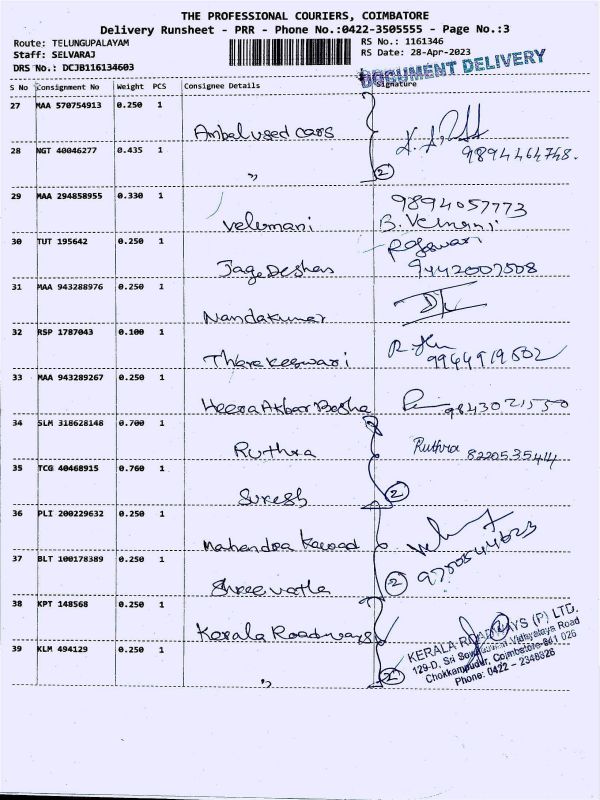 THE PROFESSIONAL COURIERS, COIMBATORE
Delivery Runsheet - PRR - Phone No.:0422-3505555 - Page No.:3
Route: TELUNGUPALAYAM
Staff: SELVARAJ
DRS No.: DCJB116134603
RS No.: 1161346
RS Date: 28-Apr-2023
DOCUMENT DELIVERY
S No Consignment No Weight PCS Consignee Details Signature
27 MAA 570754913 0.250 1
Ambal used cars
28 NGT 40046277 0.435 1
9894464748.
" 2
29 MAA 294858955 0.330 1
9894057773
Velumani
30 TUT 195642 0.250 1
Jagadeshan 9442007508
31 MAA 943288976 0.250 1
Nandakumar
32 RSP 1787043 0.100 1
Tharakeswari 9944919502
33 MAA 943289267 0.250 1
Heera Akbar Basha
34 SLM 318628148 0.700 1
Ruthra Ruthra 8220535414
35 TCG 40468915 0.760 1
Suresh 2
36 PLI 200229632 0.250 1
Mahendra
37 BLT 100178389 0.250 1
2 9750544623
38 KPT 148568 0.250 1
Kerala Roadways
39 KLM 494129 0.250 1
" 2
KERALA ROADWAYS (P) LTD.
129-D, Sri Vidhyalaya Road
Chokkampudur, Coimbatore-641 026
Phone: 0422 - 2348326